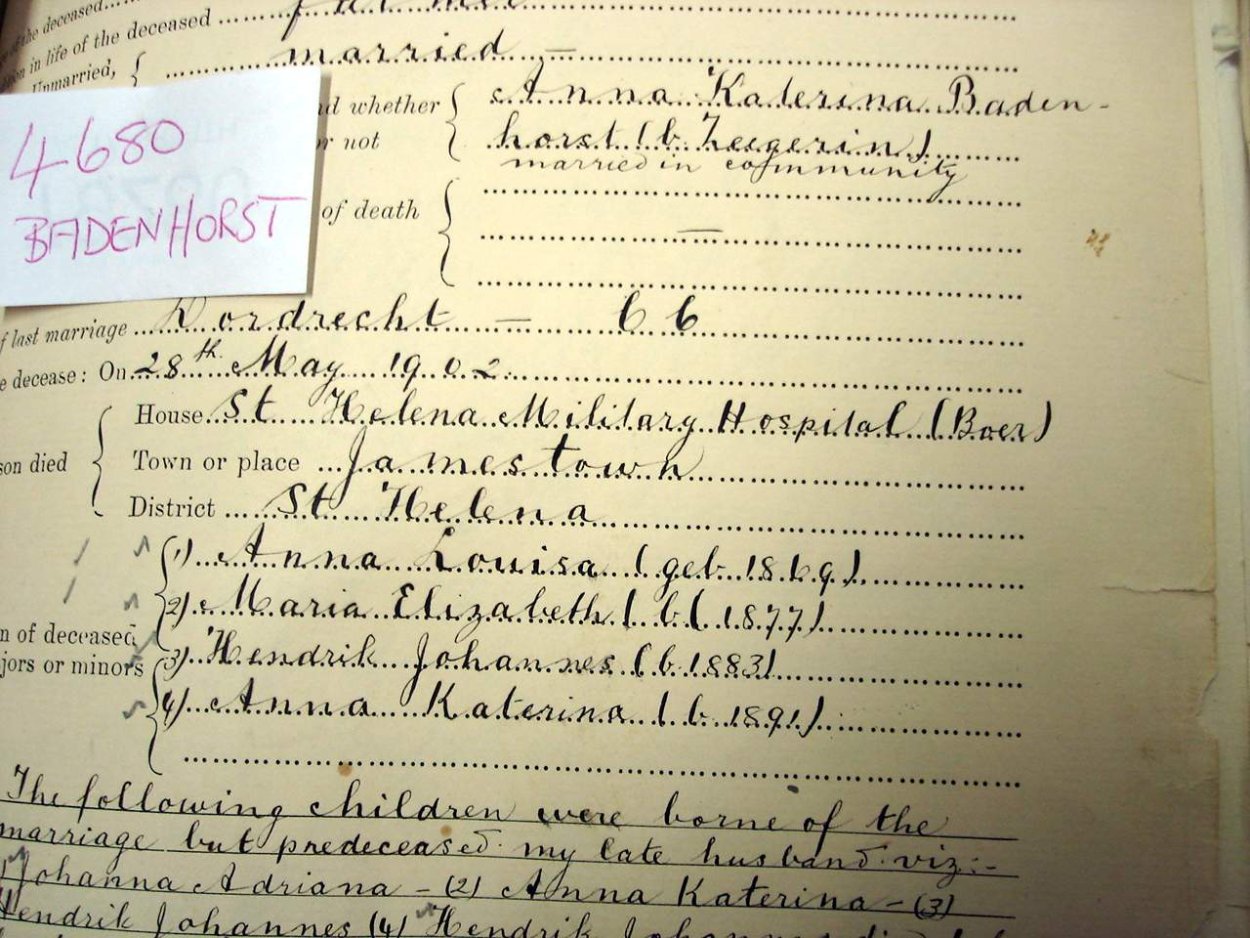 of the deceased
in life of the deceased
Unmarried, married —
4680
BADENHORST
whether Anna Katerina Baden-
or not horst (b Zeegerin)
married in community
of death —
of last marriage Dordrecht — 66
decease: On 28th May 1902
House St Helena Military Hospital (Boer)
son died Town or place Jamestown
District St Helena
1) Anna Louisa (geb 1869)
2) Maria Elizabeth (b( 1877)
n of deceased,
jors or minors 3) Hendrik Johannes (b 1883)
4) Anna Katerina (b 1891)
The following children were borne of the
marriage but predeceased my late husband viz:-
Johanna Adriana - (2) Anna Katerina - (3)
Hendrik Johannes (4) Hendrik Johannes